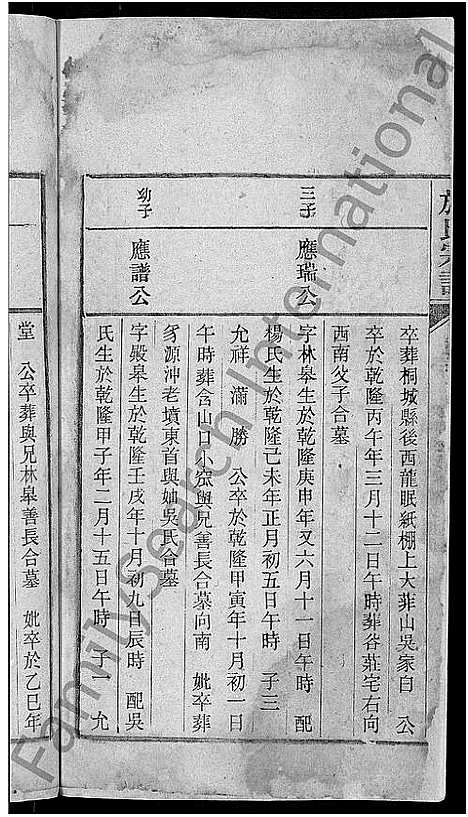 氏宗譜
卒葬桐城縣後西龍眠紙棚上大葬山吳家自 公
卒於乾隆丙午年三月十二日午時葬谷莊宅右向
西南父子合墓
三子
應瑞公
字林皋生於乾隆庚申年又六月十一日午時 配
楊氏生於乾隆己未年正月初五日午時 子三
允祥 滿 勝 公卒於乾隆甲寅年十月初一日
午時葬含山口小與兄善長合墓向南 妣卒葬
源沖老墳東首與妯吳氏合墓
幼子
應譜公
字殿皋生於乾隆壬戌年十月初九日辰時 配吳
氏生於乾隆甲子年二月十五日午時 子一 允
堂 公卒葬與兄林皋善長合墓 妣卒於乙巳年
FamilySearch International